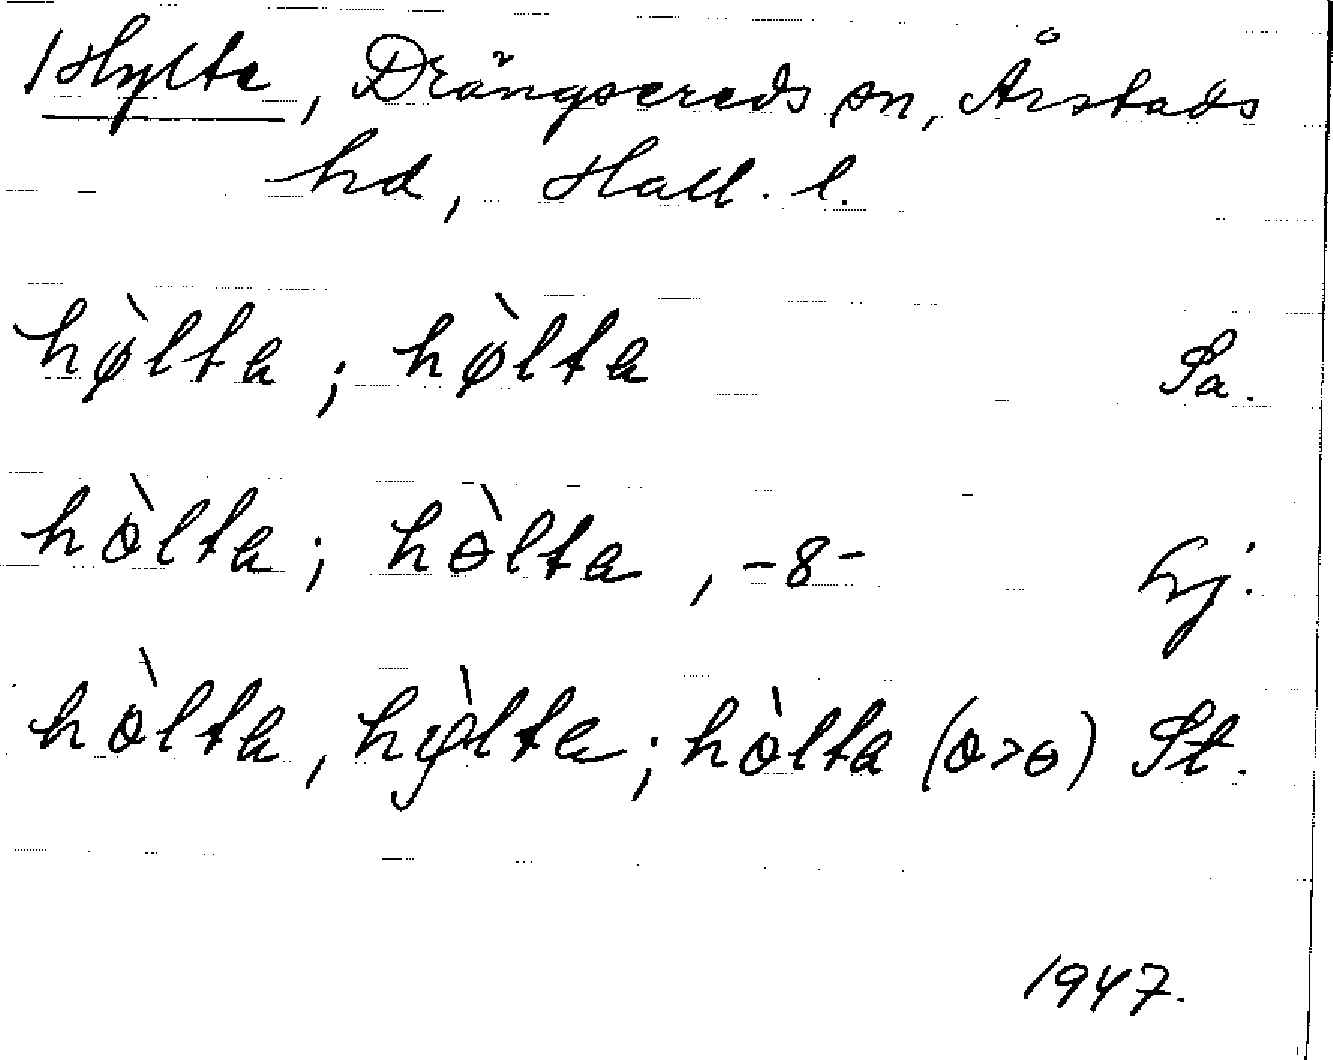 Hylte, Drängsereds sn, Årstads
hd, Hall. l.
hø̀lta; hø̀lta Sa.
hò̀lta; hɵ̀lta, -8- Lj.
hòlta, hø̀lta; hòlta (o>ɵ) St.
1947.